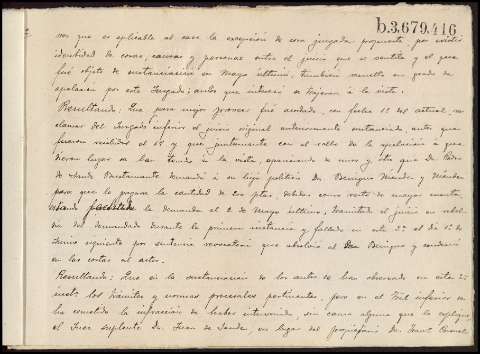 b.3.679.416
nos que es aplicable al caso la excepción de cosa juzgada propuesta por existir
identidad de cosas, causas y personas entre el juicio que se ventila y el que
fué objeto de sustanciación en Mayo último, también resuelto en grado de
apelación por este Juzgado; autos que se trajeron á la vista.
Resultando: Que para mejor proveer fué acordado, con fecha 1º del actual, re-
clamar del Juzgado inferior el juicio original anteriormente sustanciado, autos que
fueron recibidos el 15 y que juntamente con el rollo de la apelación á que
dieron lugar se han tenido á la vista, apareciendo de unos y otro que Dn. Pedro
de Bustamante demandó á su hijo político Dn. Benigno Méndez y Méndez
para que le pagara la cantidad de 20 ptas. debidas como resto de mayor cuantía
la demanda el 2 de Mayo último, tramitado el juicio en rebel-
día del demandado durante la primera instancia y fallado en esta 2ª el día 1º de
Junio siguiente por sentencia revocatoria que absolvió al Dn. Benigno y condenó
en las costas al actor.
Resultando: Que en la sustanciación de los autos se han observado en esta 2ª
inst.ª los trámites y normas procesales pertinentes, pero en el Tral. inferior se
ha cometido la infracción de haber intervenido, sin causa alguna que lo explique
el Juez suplente Dn. Juan de Sande, en lugar del propietario Dn.